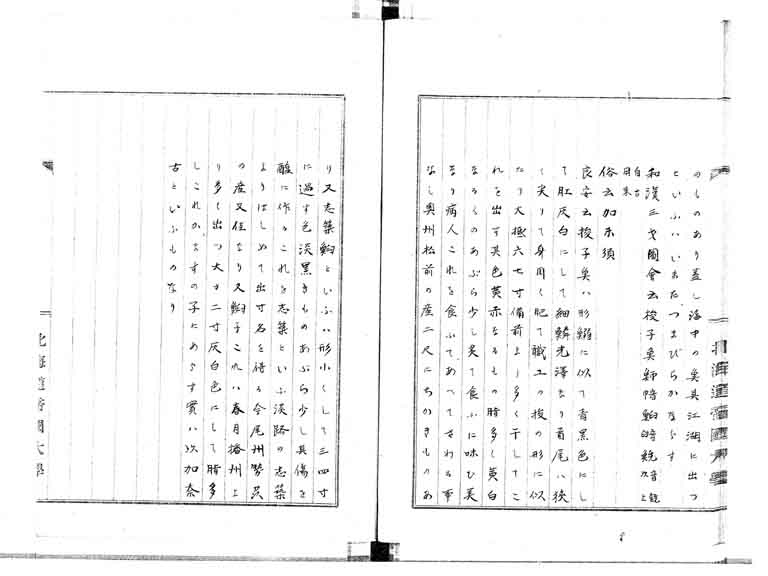 のものあり蓋し海中の魚其江湖に出つ
といふハいまたつまびらかならす
和漢三才圖會云梭子魚
俗云加末須
良安云梭子魚ハ形鯔に似て青黒色にし
て肚灰白にして細鱗光澤なり首尾ハ狹
く尖りて身圓く肥て織工の梭の形に似
たり大極六七寸備前より多く干してこ
れを出す其色黄赤なるもの脂多し黄白
なるものあぶら少し炙て食ふに味ひ美
なり病人これを食ふてあへてさわる事
なし奥州松前の産二尺にちかきものあ
り又志築魣といふハ形小くして三四寸
に過す色淡黒きものあぶら少し其傷を
醎に作るこれを志築といふ淡路の志築
よりはしめて出す名を得る今尾州勢州
の産又佳なり又魣子これハ春月播州よ
り多く出つ大サ二寸灰白色にして脂多
しこれかますの子にあらす實ハ以加奈
古といふものなり
北海道帝國大學
北海道帝國大學